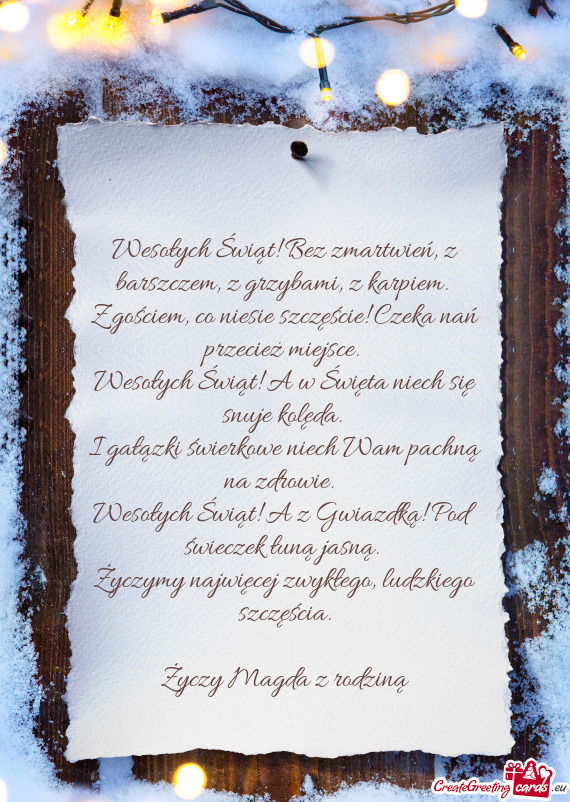 Wesołych Świąt! Bez zmartwień, z
barszczem, z grzybami, z karpiem.
Z gościem, co niesie szczęście! Czeka nań
przecież miejsce.
Wesołych Świąt! A w Święta niech się
snuje kolęda.
I gałązki świerkowe niech Wam pachną
na zdrowie.
Wesołych Świąt! A z Gwiazdką! Pod
świeczek łuną jasną.
Życzymy najwięcej zwykłego, ludzkiego
szczęścia.
Życzy Magda z rodziną
CreateGreeting cards .eu